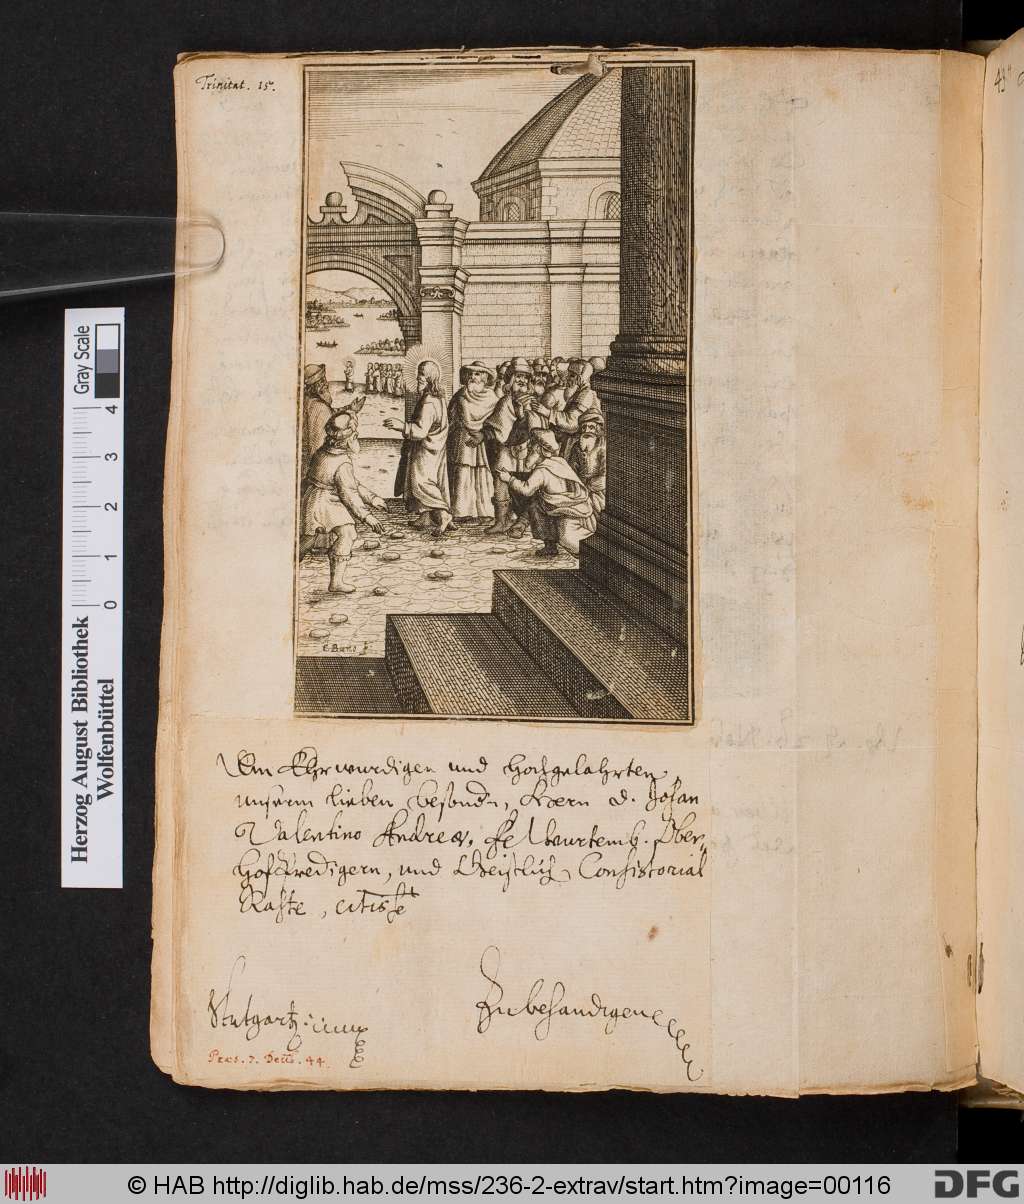 Trinitat. 15.
C. Buno f.
Dem Ehrwürdigen und Hochgelahrten
unserm lieben besondn, Herrn D. Johan
Valentino Andreæ, Würtemb. Ober
Hoffpredigern, und Geistlich Consistorial
Rahte, citiss
Stutgart
Zu behandigen
Præs. 7. Decb. 44.
43
Herzog August Bibliothek
Wolfenbüttel
Gray Scale
0 1 2 3 4
© HAB http://diglib.hab.de/mss/236-2-extrav/start.htm?image=00116
DFG